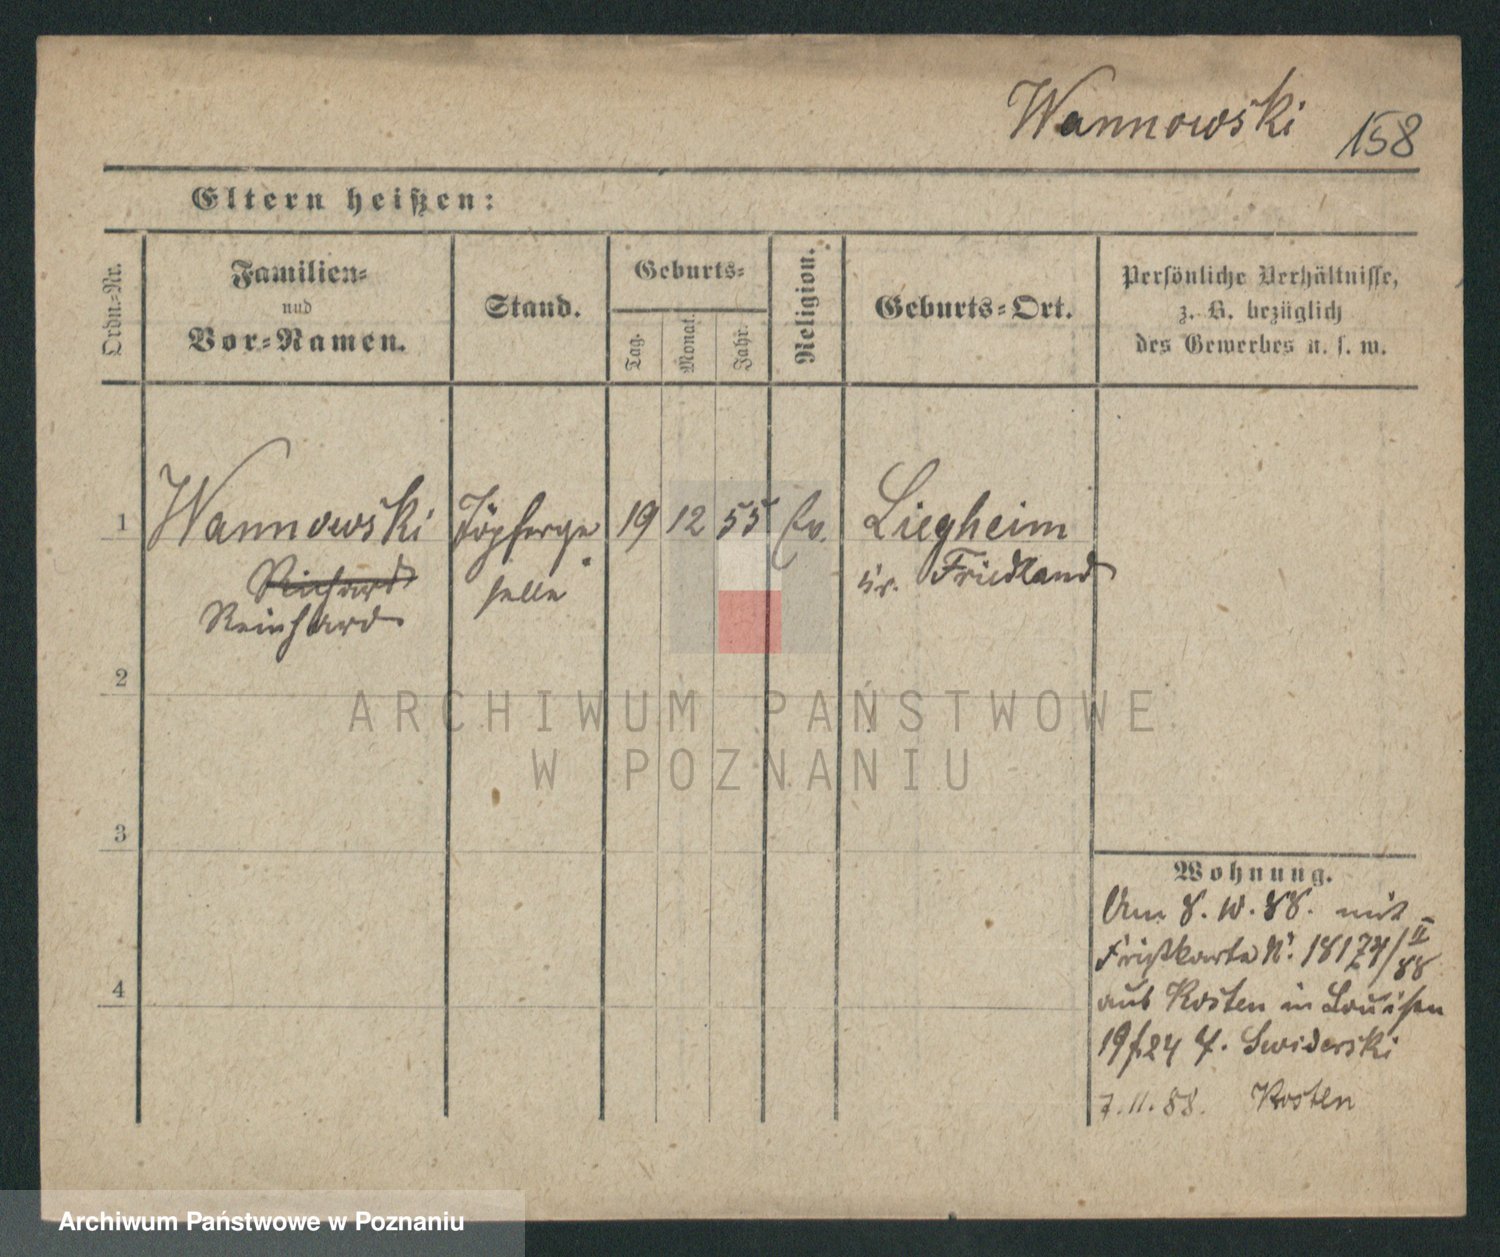 Wannowski 158
Eltern heißen:
Ordn.-Nr.
Familien-
und
Vor-Namen.
Stand.
Geburts-
Tag.
Monat.
Jahr.
Religion.
Geburts-Ort.
Persönliche Verhältnisse,
z. B. bezüglich
des Gewerbes u. s. w.
1 Wannowski Töpferge 19 12 55 Ev. Liegheim
Richard selle Kr. Friedland
Reinhard
2
3
4
Wohnung.
Am 8. 10. 88. mit
Fristkarte Nr. 18174/II 88
aus Kosten in
19/ 24 Swiderski
7. 11. 88. Kosten
ARCHIWUM PAŃSTWOWE
W POZNANIU
Archiwum Państwowe w Poznaniu